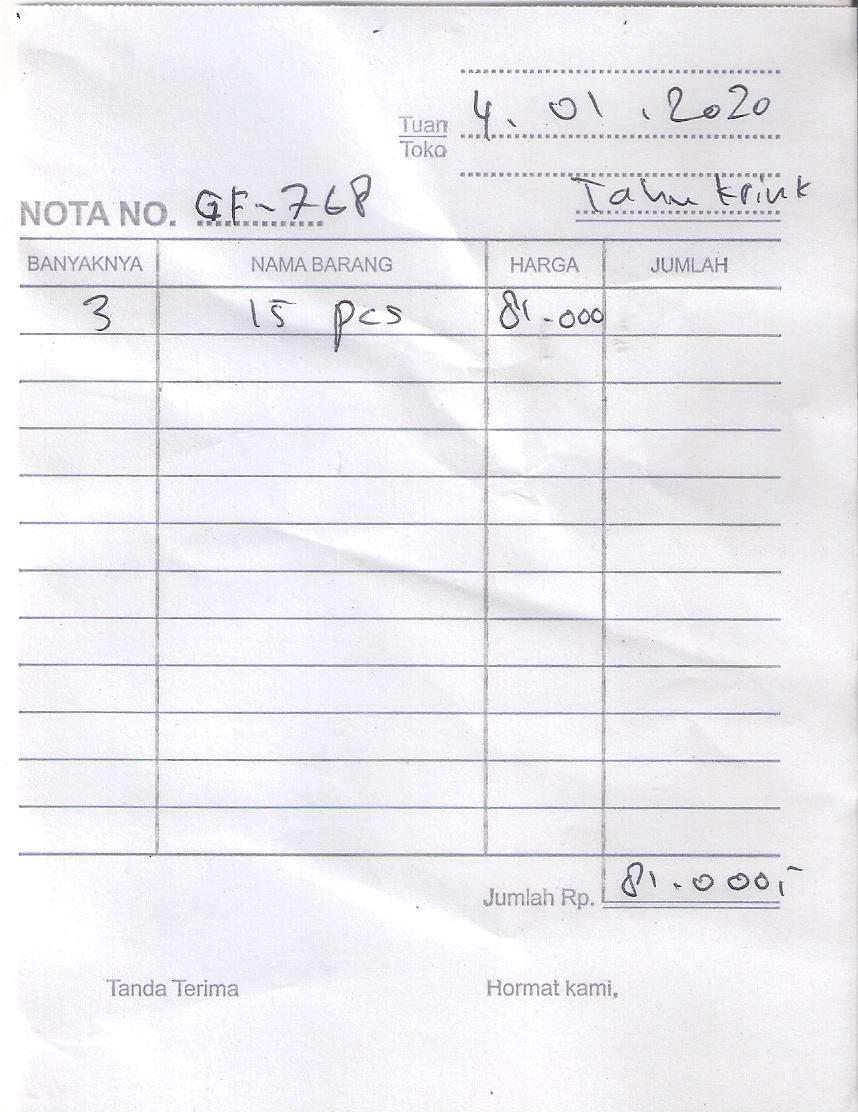 4. 01 . 2020
Tuan
Toko
NOTA NO. GF-768
Tahu krink
BANYAKNYA NAMA BARANG HARGA JUMLAH
3 15 pcs 81.000
Jumlah Rp. 81.000,-
Tanda Terima Hormat kami,